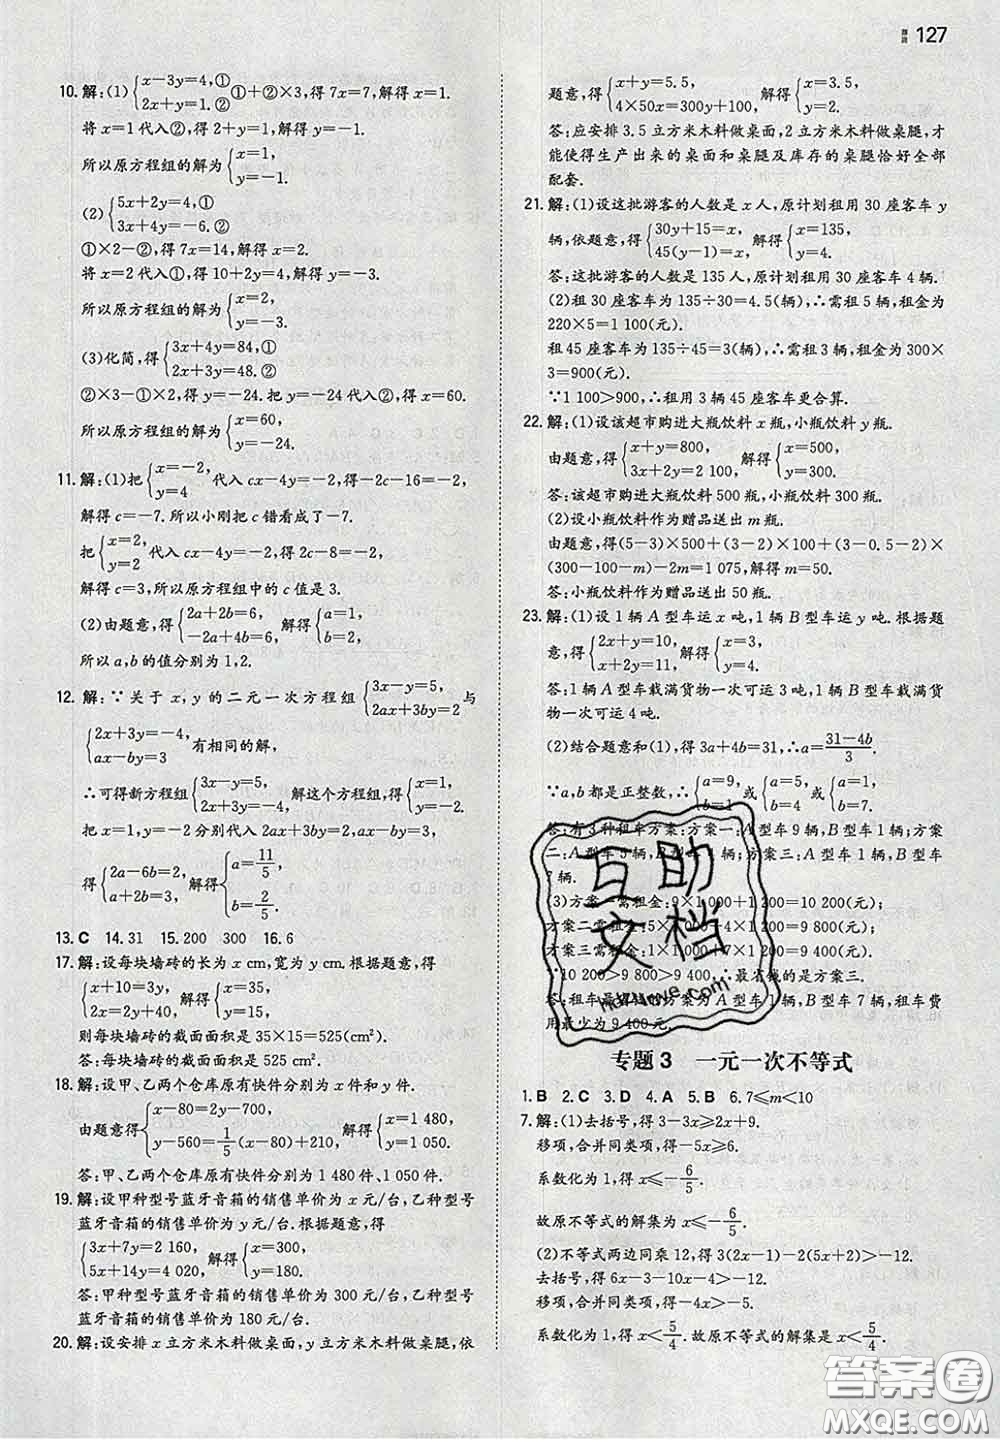 答案 127
10. 解:(1){x-3y=4,① 2x+y=1.② ①+②×3,得7x=7,解得x=1.
将x=1代入②,得2+y=1,解得y=-1.
所以原方程组的解为{x=1, y=-1.
(2){5x+2y=4,① 3x+4y=-6.②
①×2-②,得7x=14,解得x=2.
将x=2代入①,得10+2y=4,解得y=-3.
所以原方程组的解为{x=2, y=-3.
(3)化简,得{3x+4y=84,① 2x+3y=48.②
②×3-①×2,得y=-24.把y=-24代入②,得x=60.
所以原方程组的解为{x=60, y=-24.
11. 解:(1)把{x=-2, y=4 代入cx-4y=-2,得-2c-16=-2,
解得c=-7.所以小刚把c错看成了-7.
把{x=2, y=2 代入cx-4y=-2,得2c-8=-2,
解得c=3,所以原方程组中的c值是3.
(2)由题意,得{2a+2b=6, -2a+4b=6. 解得{a=1, b=2,
所以a,b的值分别为1,2.
12. 解:∵关于x,y的二元一次方程组{3x-y=5, 2ax+3by=2 与
{2x+3y=-4, ax-by=3 有相同的解,
∴可得新方程组{3x-y=5, 2x+3y=-4. 解这个方程组,得{x=1, y=-2.
把x=1,y=-2分别代入2ax+3by=2,ax-by=3,
得{2a-6b=2, a+2b=3. 解得{a=11/5, b=2/5.
13. C 14. 31 15. 200 300 16. 6
17. 解:设每块墙砖的长为x cm,宽为y cm.根据题意,得
{x+10=3y, 2x=3y+40, 解得{x=35, y=15,
则每块墙砖的截面面积是35×15=525(cm²).
答:每块墙砖的截面面积是525 cm².
18. 解:设甲、乙两个仓库原有快件分别为x件和y件.
由题意得{x-80=2y-700, y-560=1/5(x-80)+210, 解得{x=1 480, y=1 050.
答:甲、乙两个仓库原有快件分别为1 480件、1 050件.
19. 解:设甲种型号蓝牙音箱的销售单价为x元/台,乙种型号
蓝牙音箱的销售单价为y元/台.根据题意,得
{3x+7y=2 160, 5x+14y=4 020, 解得{x=300, y=180.
答:甲种型号蓝牙音箱的销售单价为300元/台,乙种型号
蓝牙音箱的销售单价为180元/台.
20. 解:设安排x立方米木料做桌面,y立方米木料做桌腿,依
题意,得{x+y=5.5, 4×50x=300y+100, 解得{x=3.5, y=2.
答:应安排3.5立方米木料做桌面,2立方米木料做桌腿,
才能使得生产出来的桌面和桌腿及库存的桌腿恰好全部
配套.
21. 解:(1)设这批游客的人数是x人,原计划租用30座客车y
辆,依题意,得{30y+15=x, 45(y-1)=x, 解得{x=135, y=4.
答:这批游客的人数是135人,原计划租用30座客车4辆.
(2)租30座客车为135÷30=4.5(辆),∴需租5辆,租金为
220×5=1 100(元).
租45座客车为135÷45=3(辆),∴需租3辆,租金为300×
3=900(元).
∵1 100>900,∴租用3辆45座客车更合算.
22. 解:(1)设该超市购进大瓶饮料x瓶,小瓶饮料y瓶.
由题意,得{x+y=800, 3x+2y=2 100, 解得{x=500, y=300.
答:该超市购进大瓶饮料500瓶,小瓶饮料300瓶.
(2)设小瓶饮料作为赠品送出m瓶.
由题意,得(5-3)×500+(3-2)×100+(3-0.5-2)×
(300-100-m)-2m=1 075,解得m=50.
答:小瓶饮料作为赠品送出50瓶.
23. 解:(1)设1辆A型车运x吨,1辆B型车运y吨.根据题
意,得{2x+y=10, x+2y=11, 解得{x=3, y=4.
答:1辆A型车载满货物一次可运3吨,1辆B型车载满货
物一次可运4吨.
(2)结合题意和(1),得3a+4b=31,∴a=(31-4b)/3.
∵a,b都是正整数,∴{a=9, b=1 或{a=5, b=4 或{a=1, b=7.
答:有3种租车方案:方案一:A型车9辆,B型车1辆;方案
二:A型车5辆,B型车4辆;方案三:A型车1辆,B型车
7辆.
(3)方案一需租金:9×1 000+1 200=10 200(元);
方案二需租金:5×1 000+4×1 200=9 800(元);
方案三需租金:1×1 000+7×1 200=9 400(元).
∵10 200>9 800>9 400,∴最省钱的是方案三.
答:租车最省钱的方案为A型车1辆,B型车7辆,租车费
用最少为9 400元.
专题3 一元一次不等式
1. B 2. C 3. D 4. A 5. B 6. 7≤m<10
7. 解:(1)去括号,得3-3x≥2x+9.
移项,合并同类项,得-5x≥6.
系数化为1,得x≤-6/5.
故原不等式的解集为x≤-6/5.
(2)不等式两边同乘12,得3(2x-1)-2(5x-2)>-12.
去括号,得6x-3-10x+4>-12.
移项,合并同类项,得-4x>-13.
互助文档
hdzuoye.com
答案圈
MXQE.COM